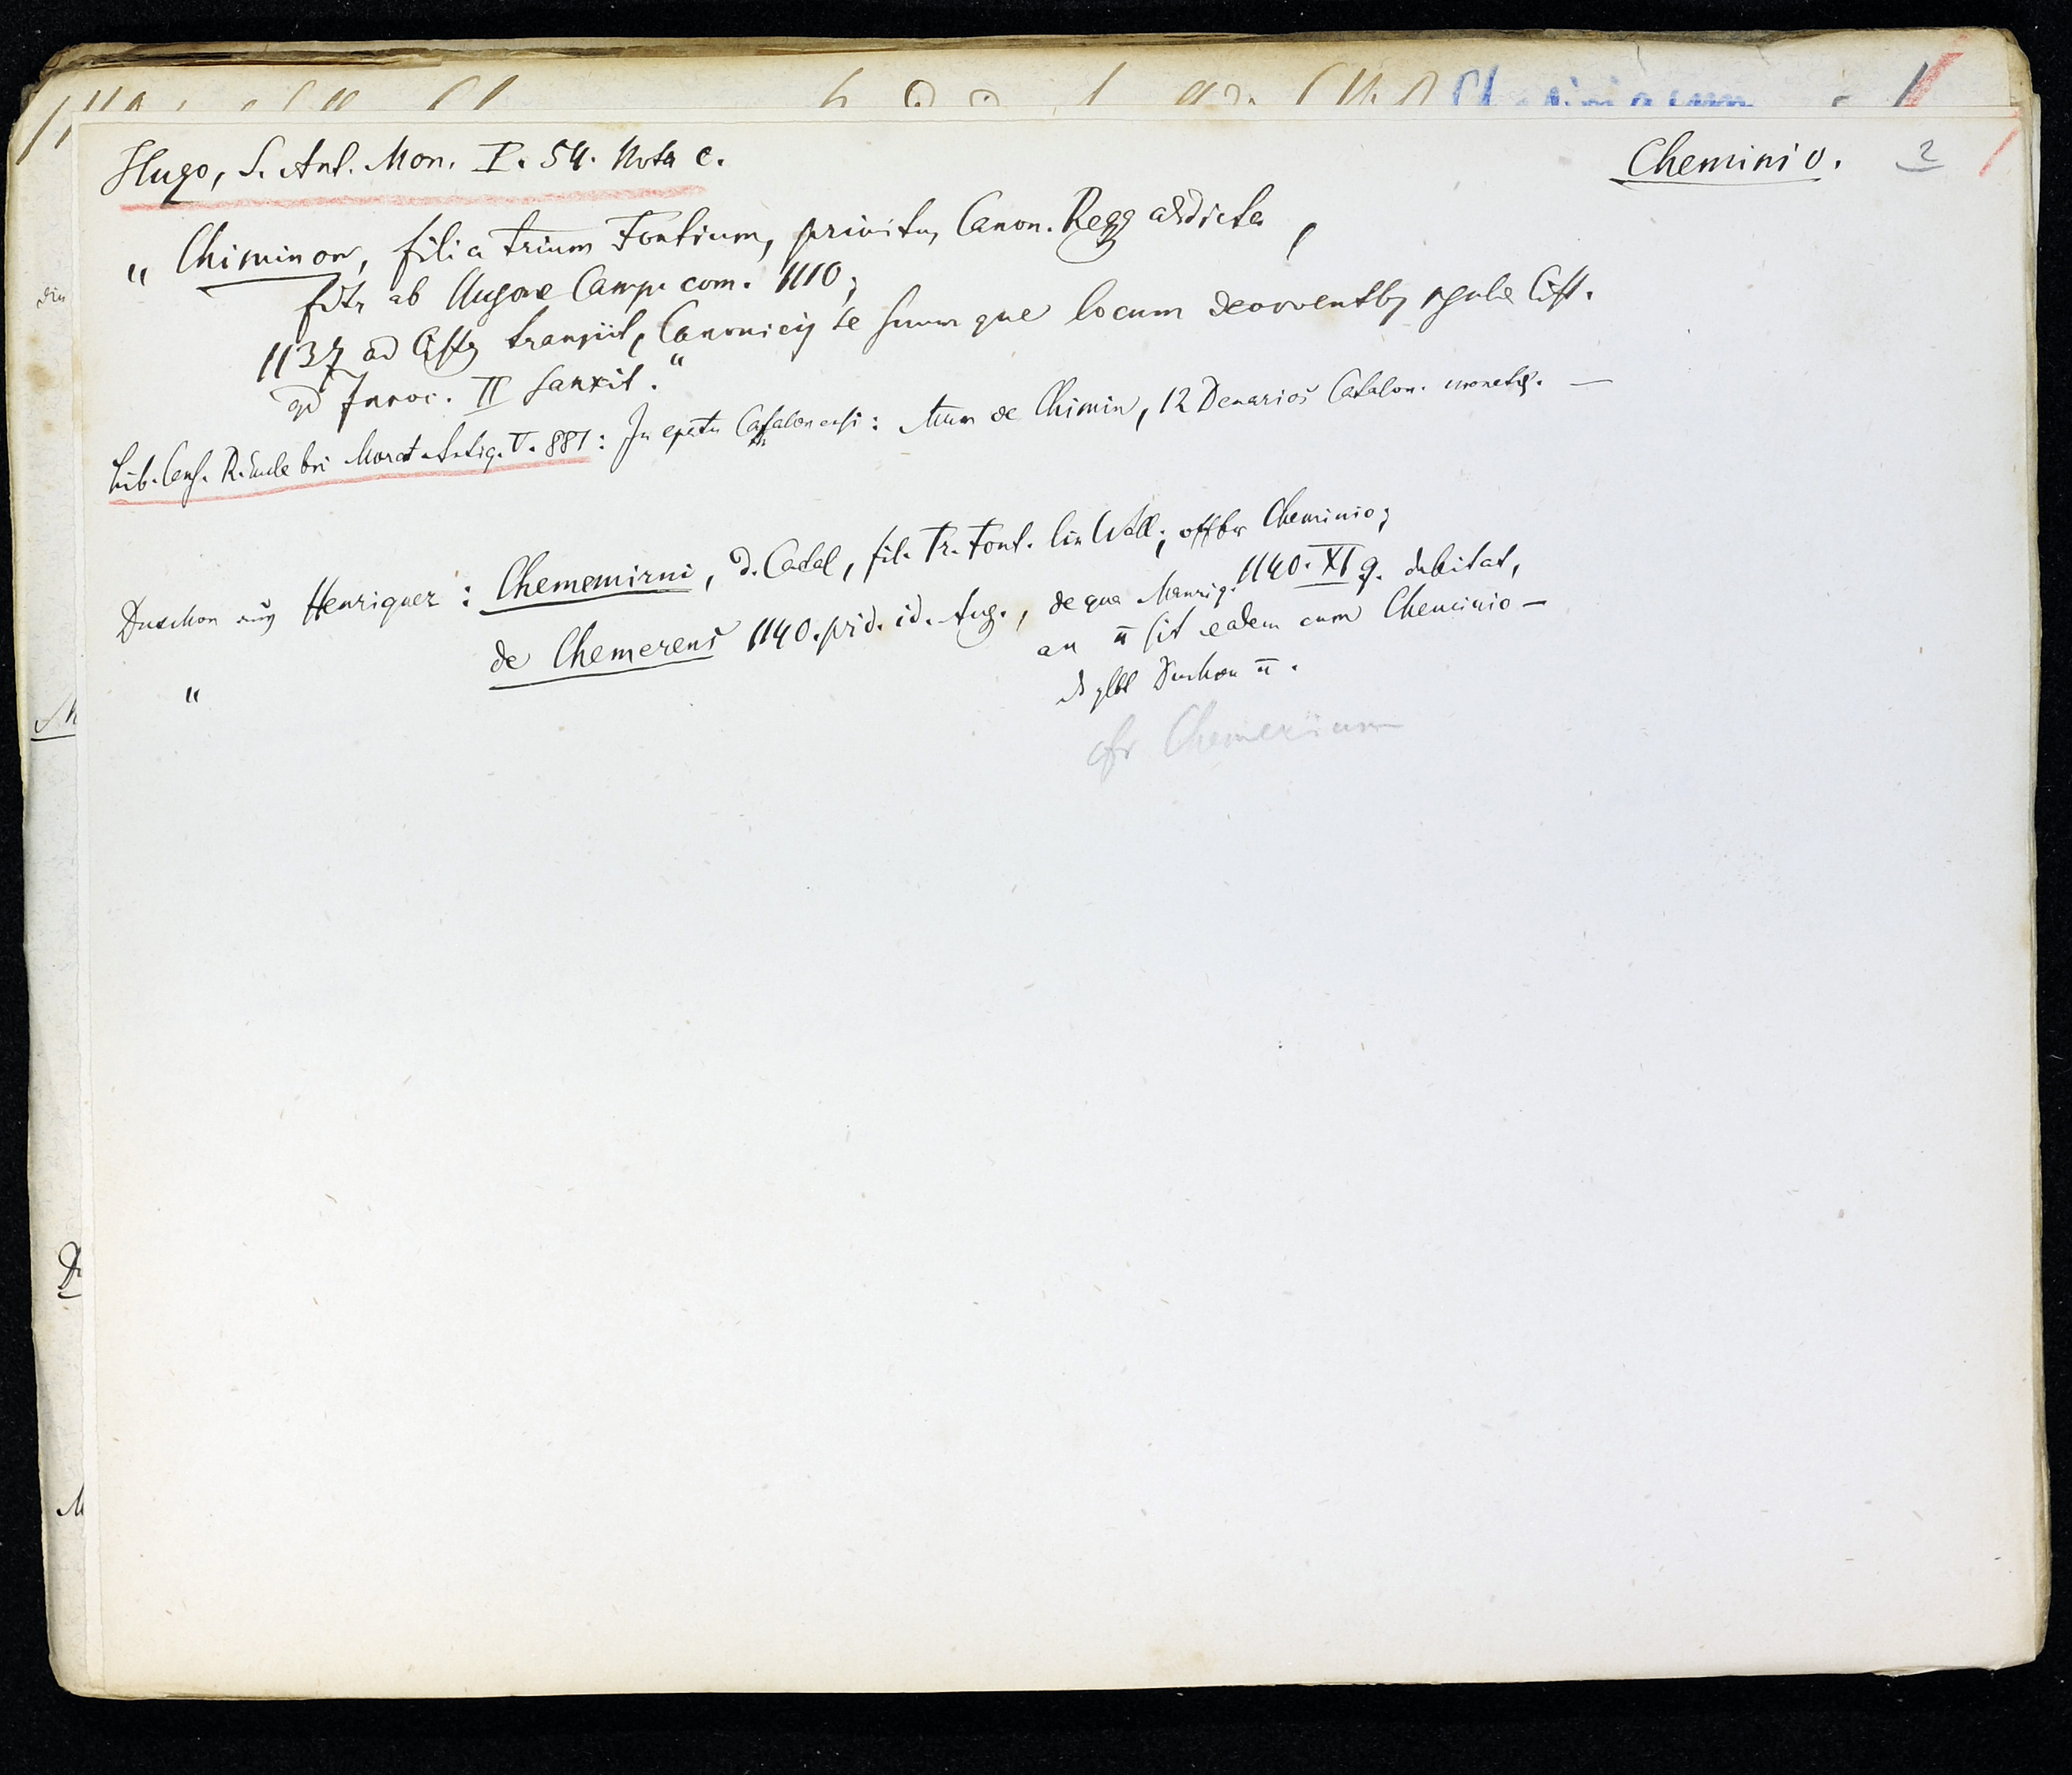 Cheminio. 2
Hugo, S. Ant. Mon. I. 54. Nota c.
„Chiminon, filia trium Fontium, privitu, Canon. Regg addicta,
fdtr ab Hugone Camp. com. 1110;
1137 ad Cist transiit, Canonicis se suumque locum devoventb regulae Cist.
qd Innoc. II sanxit."
Lib. Cens. R. bei Murat. Antiq. V. 887: In epatu Catalonensi: Mum de Chimin, 12 Denarios Catalon. monetae. —
Henriquez: Chememirni, d. Catal, fil. Tr. Font. lin Cláll; offbr Cheminio;
" de Chemerens 1140. prid. id. Aug., de qua Manriq. 1140. XI 9. dubitat,
an n̄ sit eadem cum Cheminio —
n̄.
cfr Chemerium